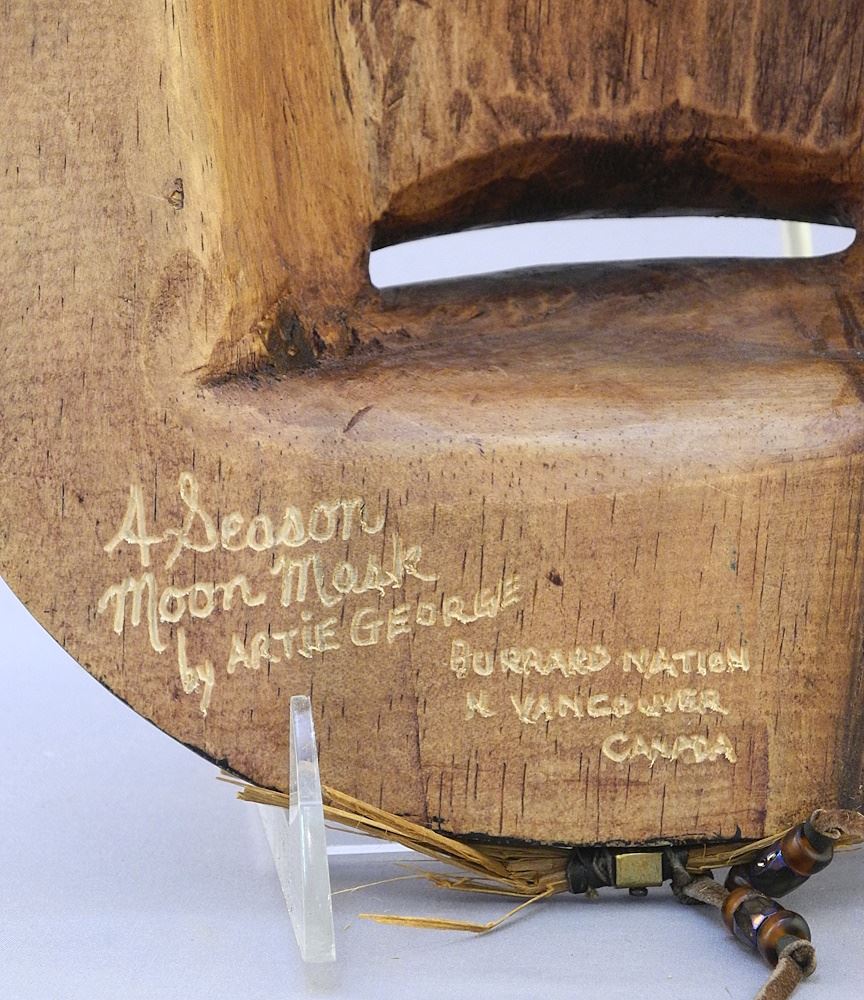 A Season
Moon Mask
by ARTIE GEORGE
BURRARD NATION
N VANCOUVER
CANADA